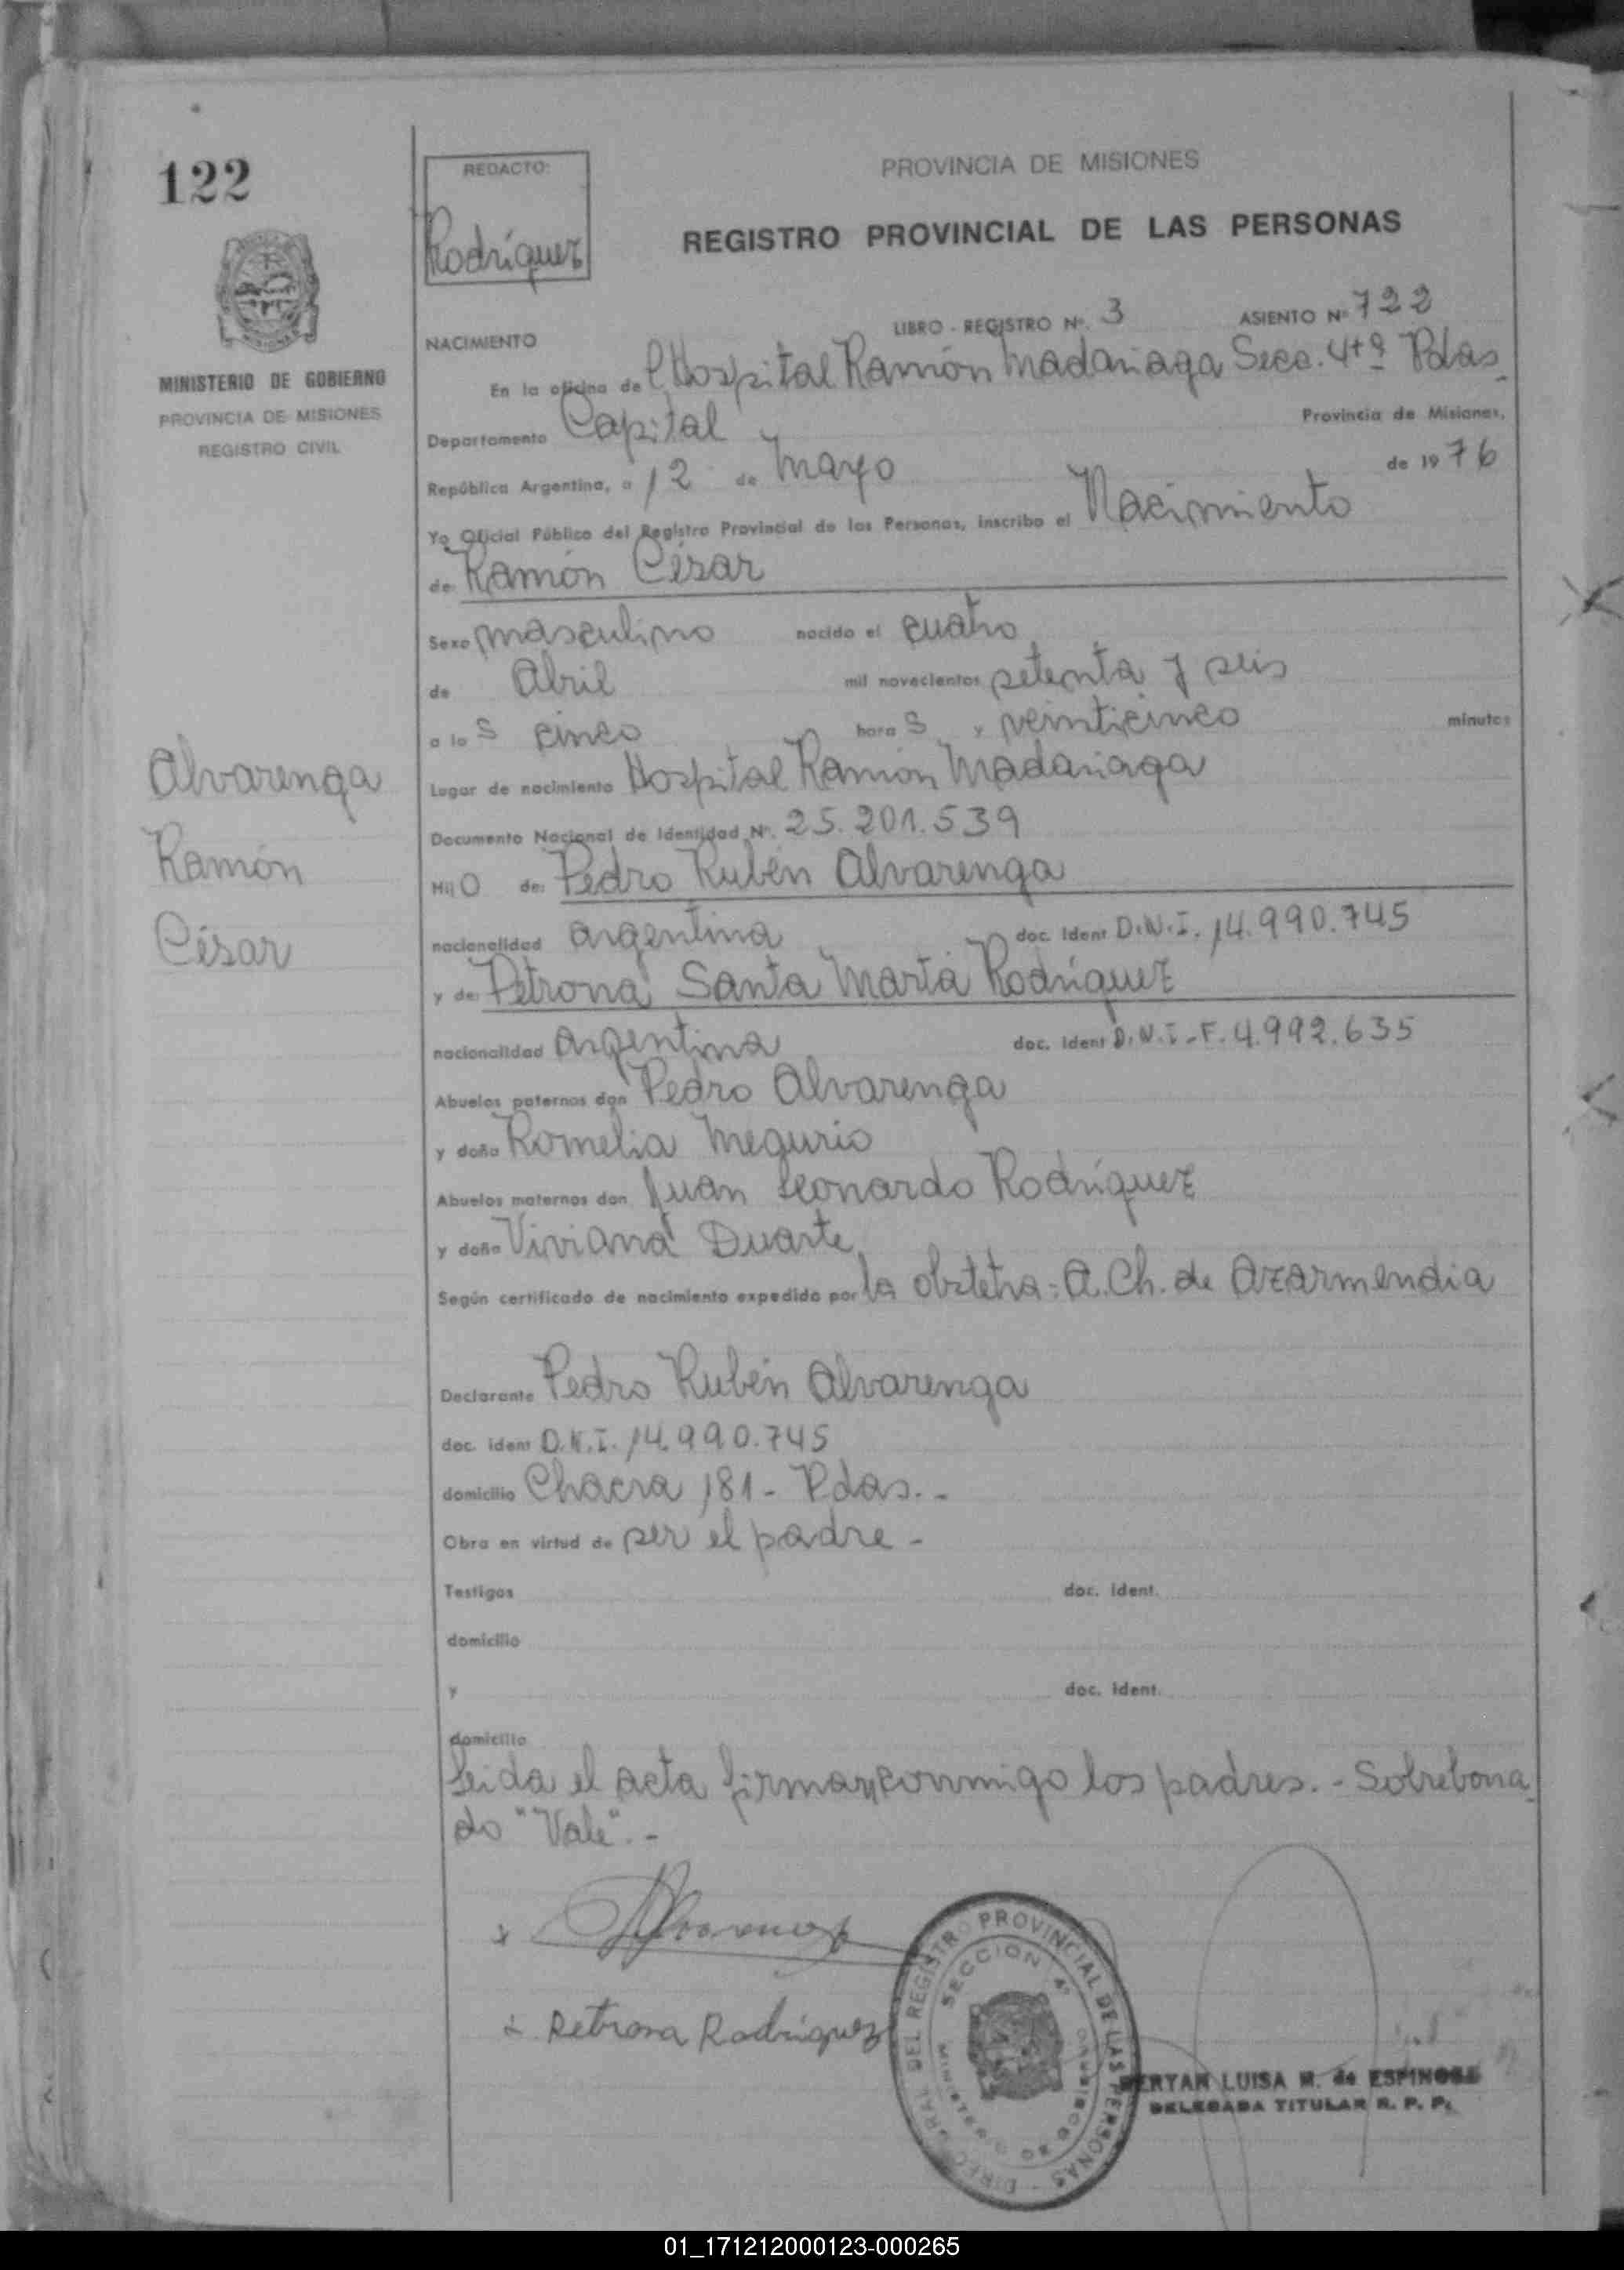 122
REDACTO:
Rodríguez
PROVINCIA DE MISIONES
REGISTRO PROVINCIAL DE LAS PERSONAS
MINISTERIO DE GOBIERNO
PROVINCIA DE MISIONES
REGISTRO CIVIL
LIBRO - REGISTRO Nº. 3 ASIENTO Nº 722
NACIMIENTO
En la oficina del Hospital Ramón Madariaga Secc. 4tª Pdas
Departamento Capital Provincia de Misiones,
República Argentina, a 12 de Mayo de 1976
Yo Oficial Público del Registro Provincial de las Personas, inscribo el Nacimiento
de: Ramón César
Sexo masculino nacido el cuatro
de Abril mil novecientos setenta y seis
a las cinco horas y veinticinco minutos
Lugar de nacimiento Hospital Ramón Madariaga
Documento Nacional de Identidad Nº. 25.201.539
Hijo de: Pedro Rubén Alvarenga
nacionalidad argentina doc. Ident D.N.I. 14.990.745
y de: Petrona Santa Marta Rodríguez
nacionalidad argentina doc. Ident D.N.I.-F. 4.992.635
Abuelos paternos don Pedro Alvarenga
y doña Romelia Megurio
Abuelos maternos don Juan Leonardo Rodríguez
y doña Viviana Duarte
Según certificado de nacimiento expedido por la obstetra: A. Ch. de Azarmendia
Declarante Pedro Rubén Alvarenga
doc. ident D.N.I. 14.990.745
domicilio Chacra 181 - Pdas. -
Obra en virtud de ser el padre -
Testigos doc. ident.
domicilio
y doc. ident.
domicilio
Leida el acta firman conmigo los padres. - Sobreborra
do "Vale". -
Alvarenga
Ramón
César
Petrona Rodriguez
DIREC. GRAL. DEL REGISTRO PROVINCIAL DE LAS PERSONAS
SECCION 4ª
MINISTERIO DE GOBIERNO
LUISA M. de ESPINOSA
DELEGADA TITULAR R. P. P.
01_171212000123-000265